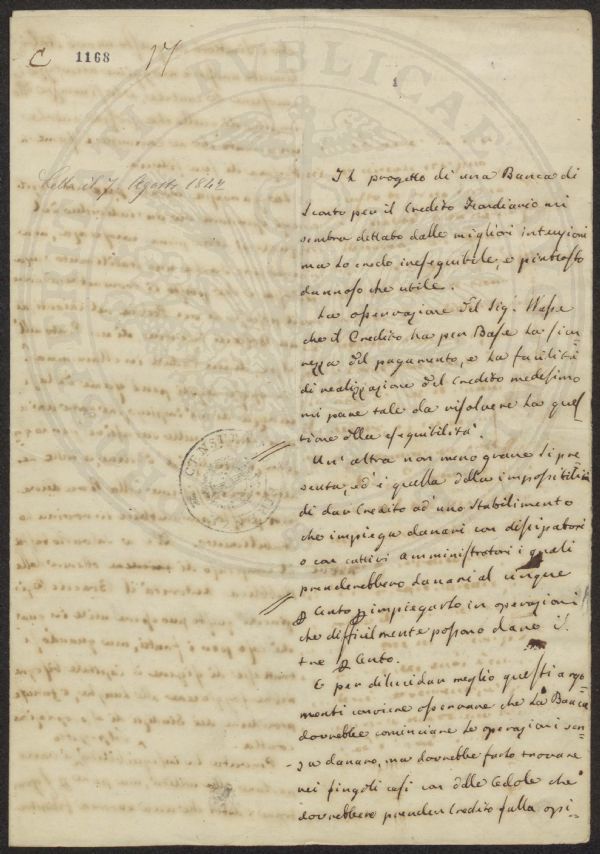 C 1168 17
1
Letta il 7 Agosto 1842
Il progetto di una Banca di
Sconto per il Credito Fondiario mi
sembra dettato dalle migliori intenzioni
ma lo credo ineseguibile, e piuttosto
dannoso che utile.
La osservazione del Sig.
che il Credito ha per Base la sicu-
rezza del pagamento, e la facilità
di realizzazione del Credito medesimo
mi pare tale da risolvere la quis
tione della eseguibilità.
Un' altra non meno grave si pre
senta, ed' è quella della impossibilità
di dar Credito ad' uno Stabilimento
che impiega danari con dissipatori
o con cattivi amministratori i quali
prenderebbero danari al cinque
p Cento p impiegarlo in operazioni
che difficilmente possono dare il
tre p Cento.
E per dilucidar meglio questi argo-
menti conviene osservare che la Banca
dovrebbe cominciare le operazioni sen-
za danaro, ma dovrebbe farlo trovare
nei singoli casi con delle Cedole che
dovrebbero prender Credito sulla opi-